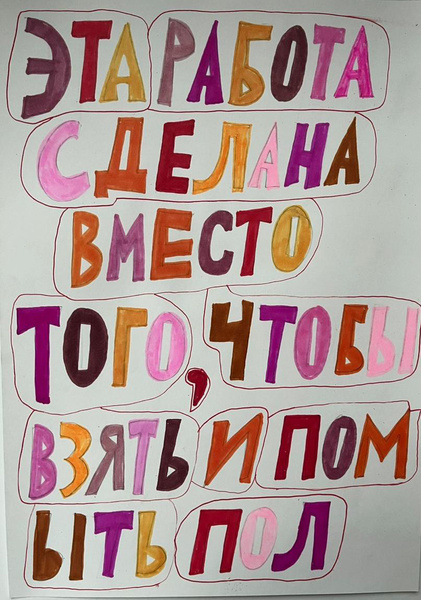 ЭТА РАБОТА
СДЕЛАНА
ВМЕСТО
ТОГО, ЧТОБЫ
ВЗЯТЬ И ПОМ
ЫТЬ ПОЛ